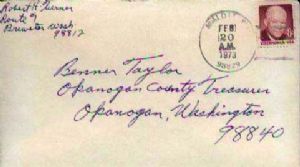 Robert H. Turner
Route 9
Brewster Wash
98812
FEB
20
A.M.
1973
Benner Taylor
Okanogan County Treasurer
Okanogan, Washington
98840